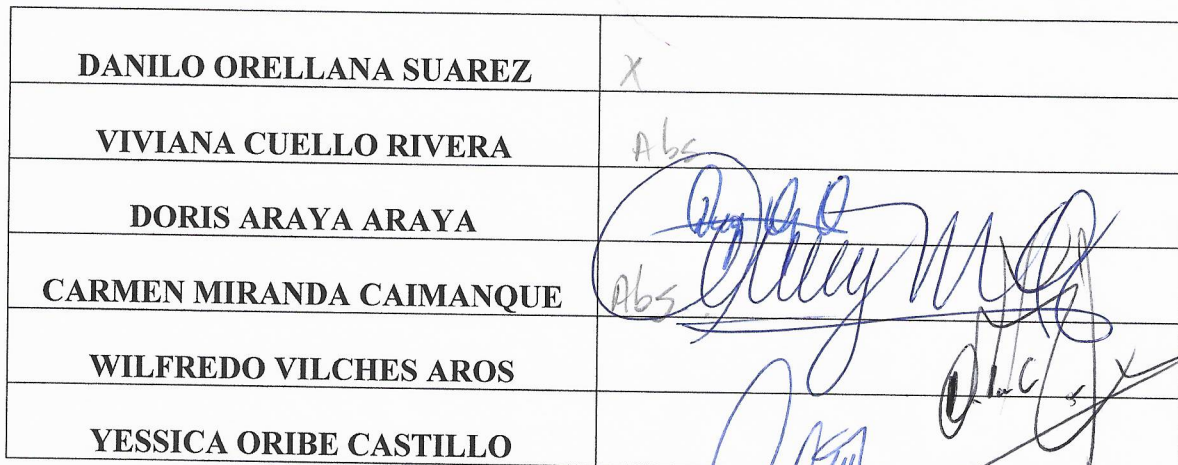 DANILO ORELLANA SUAREZ X
VIVIANA CUELLO RIVERA Abs
DORIS ARAYA ARAYA
CARMEN MIRANDA CAIMANQUE Abs
WILFREDO VILCHES AROS
YESSICA ORIBE CASTILLO